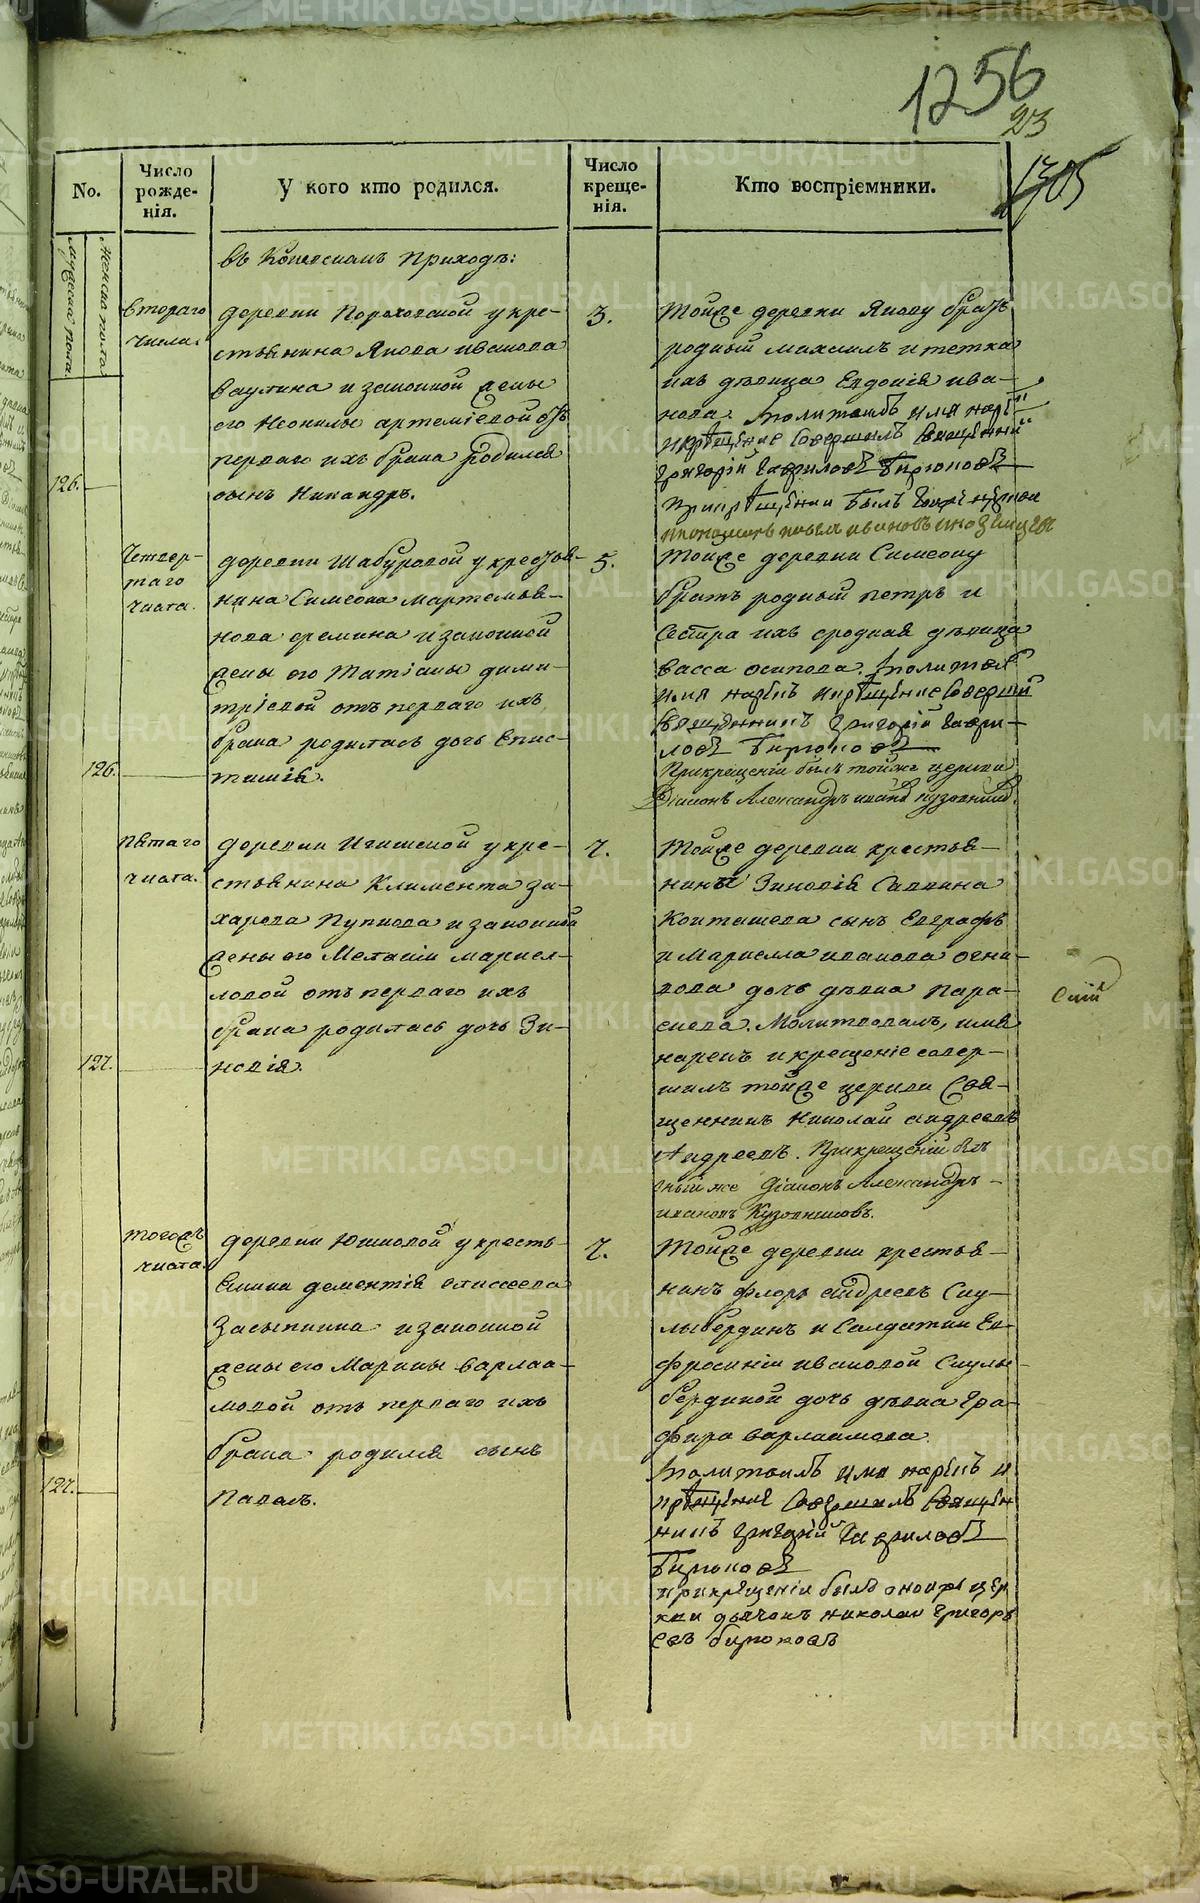 1256
23
1705
No.
Число рожде-нія.
У кого кто родился.
Число креще-нія.
Кто воспріемники.
мужеска пола
женска пола
въ Приходѣ:
Втораго
числа.
126.
деревни Пороховской у кре-
стьянина Якова иванова
Ваулина и законной жены
его Неонилы артеміевой отъ
перваго ихъ брака родился
сынъ Никандръ.
3.
Тойже деревни Якову братъ
родный Михаилъ и тетка
ихъ дѣвица Евдокія ива-
нова. Молитвовалъ имя нарѣкъ
и крѣщение совершилъ Священникъ
григорій Гавриловъ Бирюковъ
При крѣщении былъ
пономарь ивановъ
Четвер-
таго
числа.
126.
деревни Шабуровой у крестья-
нина Симеона Мартемья-
нова еремина и законной
жены его Татіаны дими-
тріевой отъ перваго ихъ
брака родилась дочь Епис-
тимія.
5.
Тойже деревни Симеону
братъ родный петръ и
Сестра ихъ сродная дѣвица
васса осипова. Молитвов
имя нарѣкъ и крѣщение Соверши
Священникъ григорій Гаври-
ловъ Бирюковъ
При крещеніи былъ тойже церкви
Діаконъ Александръ иванв Кузовников.
пятаго
числа.
127.
деревни Игишевой у кре-
стьянина Климента за-
харова Пупкова и законной
жены его Меланіи маркел-
ловой отъ перваго ихъ
брака родилась дочь Зи-
новія.
7.
Тойже деревни крестья-
нина Зиновія Саввина
Коптяшева сынъ Евграфъ
и Маркелла иванова огни-
вова дочь дѣвка Пара-
скева. Молитвовалъ, имя
нарекъ и крещеніе совер-
шилъ тойже церкви Свя-
щенникъ Николай андреевъ
Андреевъ. При крещеніи былъ
оный же Діаконъ Александръ
ивановъ Кузовниковъ.
тогожъ
числа.
127.
деревни Юшковой у кресть-
янина дементія елисеева
Засыпкина и законной
жены его Марины варлаа-
мовой отъ перваго ихъ
брака родился сынъ
Павелъ.
7.
Тойже деревни крестья-
нинъ флоръ андреевъ Ску-
лыбердинъ и Солдатки Ев-
фросиніи ивановой Скулы-
бердиной дочь дѣвка Гра-
фира варлаамова.
Молитвовалъ имя нарѣкъ и
крѣщение Совершилъ Священ
никъ григорій Гавриловъ
Бирюковъ
при крещеніи былъ оной же цер
кви дьячокъ николаи григорь
евъ бирюковъ
METRIKI.GASO-URAL.RU